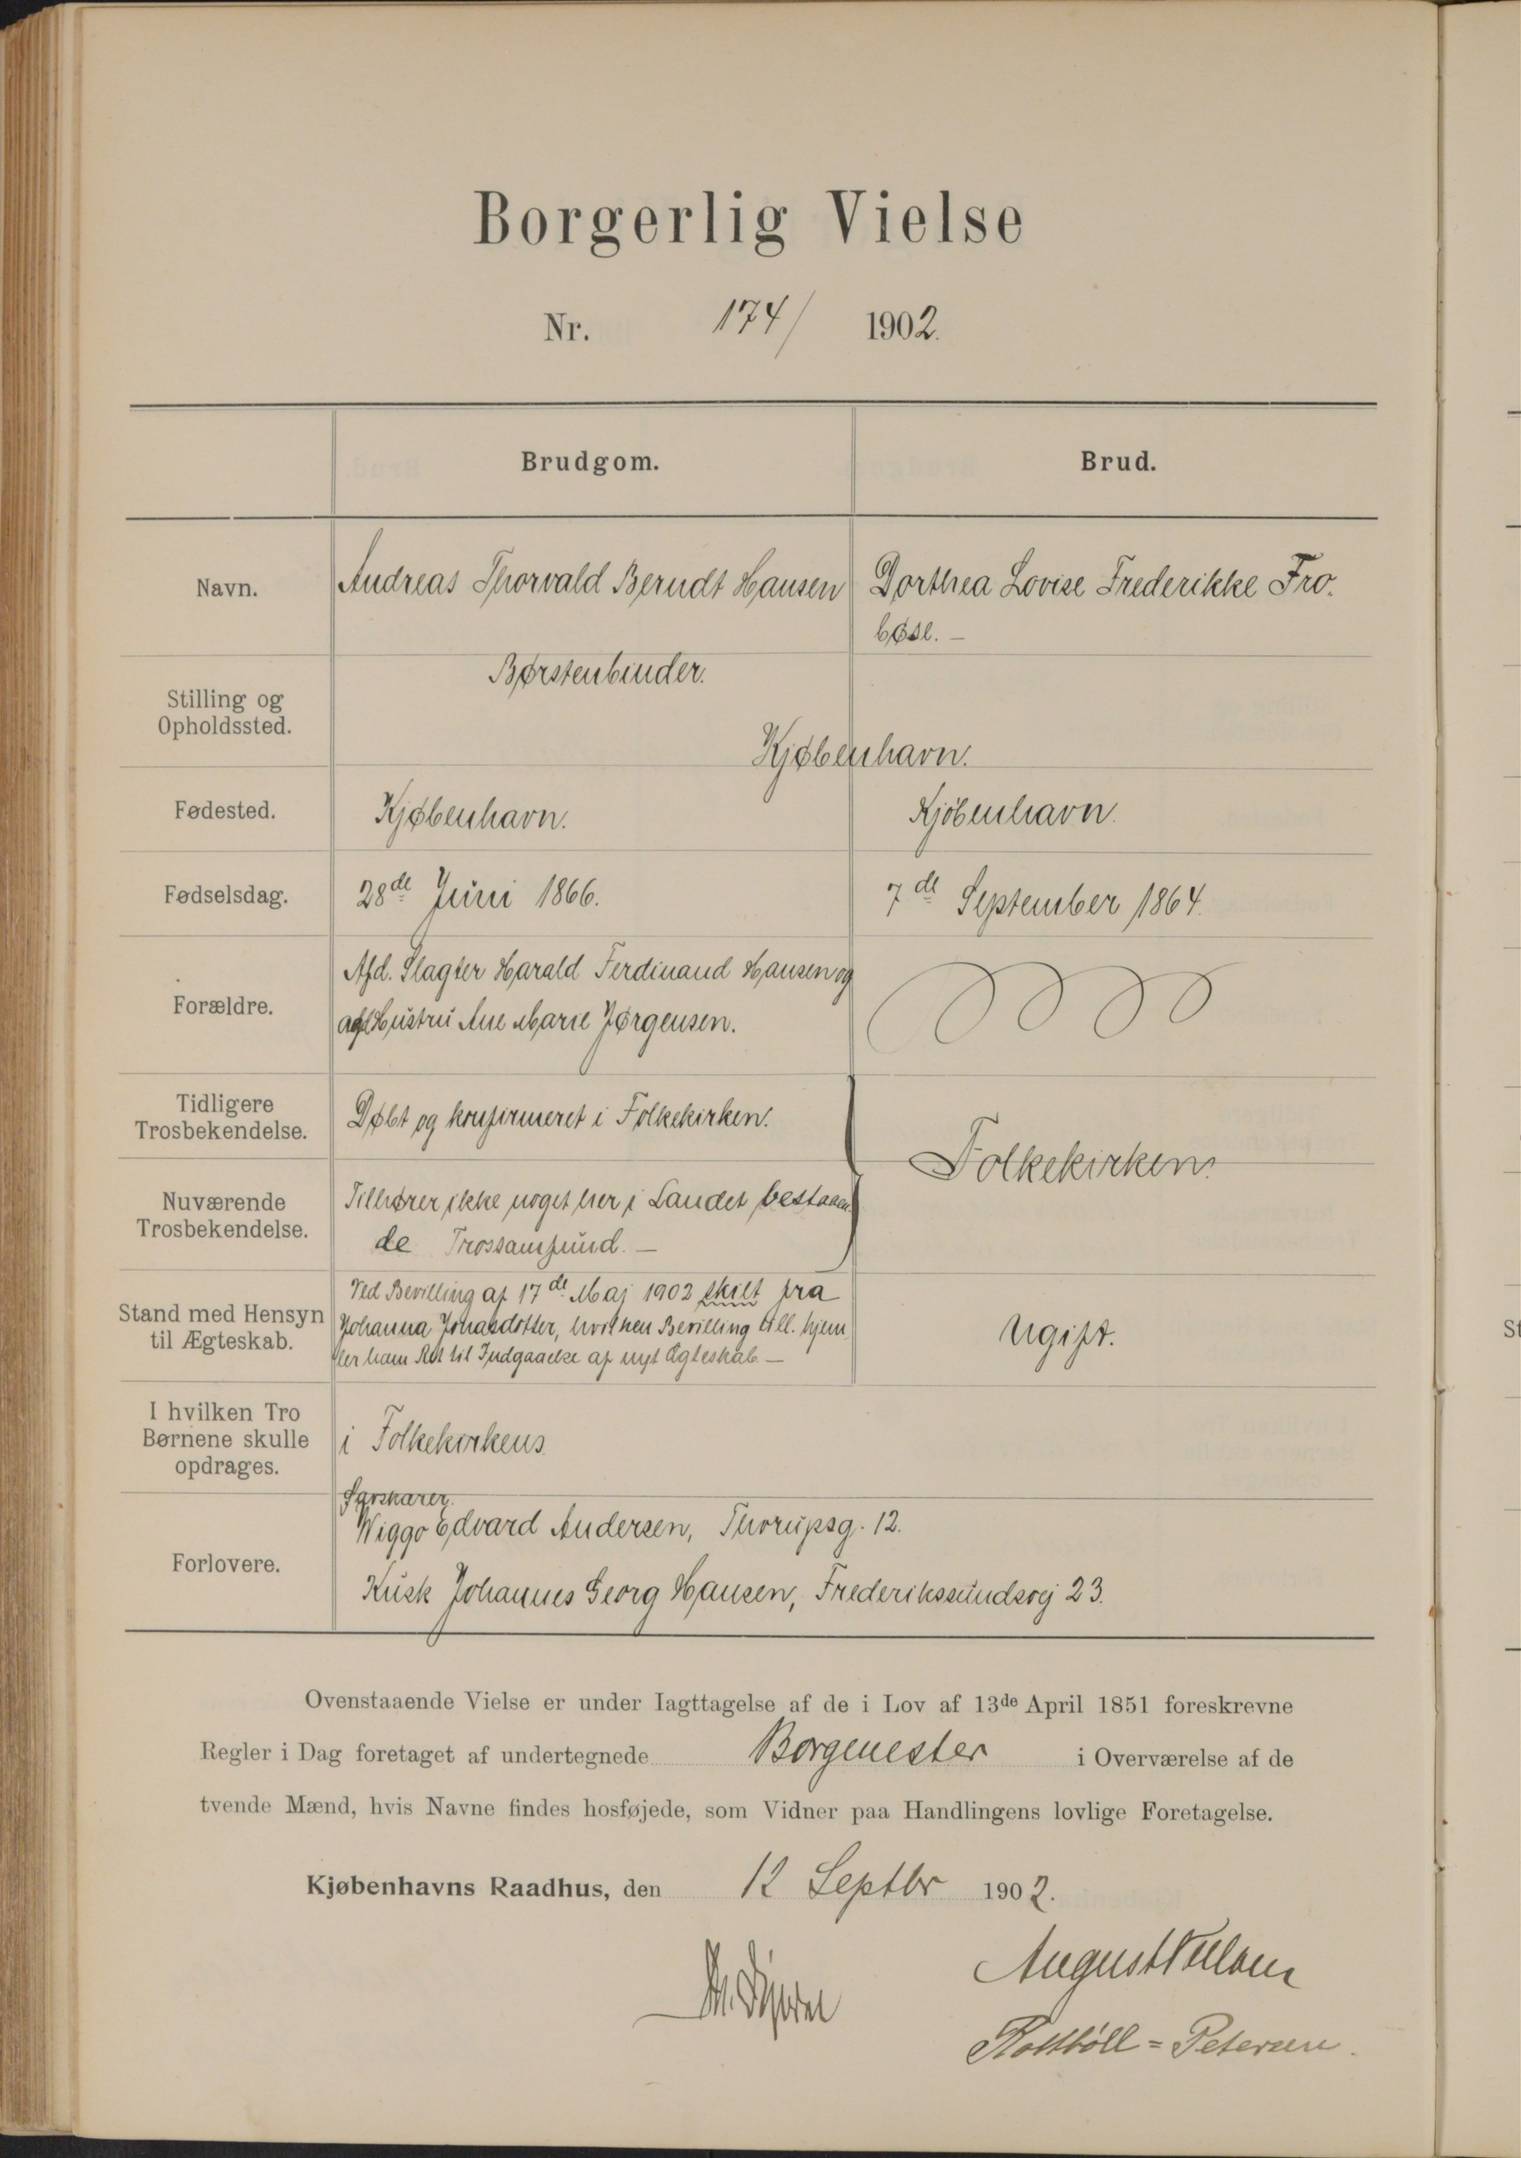 Borgerlig Vielse
Nr. 174/ 1902.
Brudgom. Brud.
Navn. Andreas Thorvald Berndt Hansen Dorthea Lovise Frederikke Fro.
bøse. —
Børstenbinder.
Stilling og
Opholdssted.
Kjøbenhavn.
Fødested. Kjøbenhavn. Kjöbenhavn.
Fødselsdag. 28de Juni 1866. 7de September 1864.
Afd. Slagter Harald Ferdinand Hansen og
Forældre.
Hustru Ane Marie Jørgensen.
Tidligere
Trosbekendelse.
Døbt og konfirmeret i Folkekirken.
Folkekirken.
Nuværende
Trosbekendelse.
Tilhører ikke noget her i Landet bestaaen
de Trossamfund. —
Stand med Hensyn
til Ægteskab.
Ved Bevilling af 17de Maj 1902 skilt fra
Johanna Jonasdotter, hvilken Bevilling till. hjem
ler ham Ret til Indgaaelse af nyt Ægteskab —
Ugift.
I hvilken Tro
Børnene skulle
opdrages.
i Folkekirkens
Forlovere.
Wiggo Edvard Andersen, Thorupsg. 12.
Kusk Johannes Georg Hansen, Frederikssundsvej 23.
Ovenstaaende Vielse er under Iagttagelse af de i Lov af 13de April 1851 foreskrevne
Regler i Dag foretaget af undertegnede Borgmester i Overværelse af de
tvende Mænd, hvis Navne findes hosføjede, som Vidner paa Handlingens lovlige Foretagelse.
Kjøbenhavns Raadhus, den 12 Septbr 1902.
August
Rottböll = Petersen.